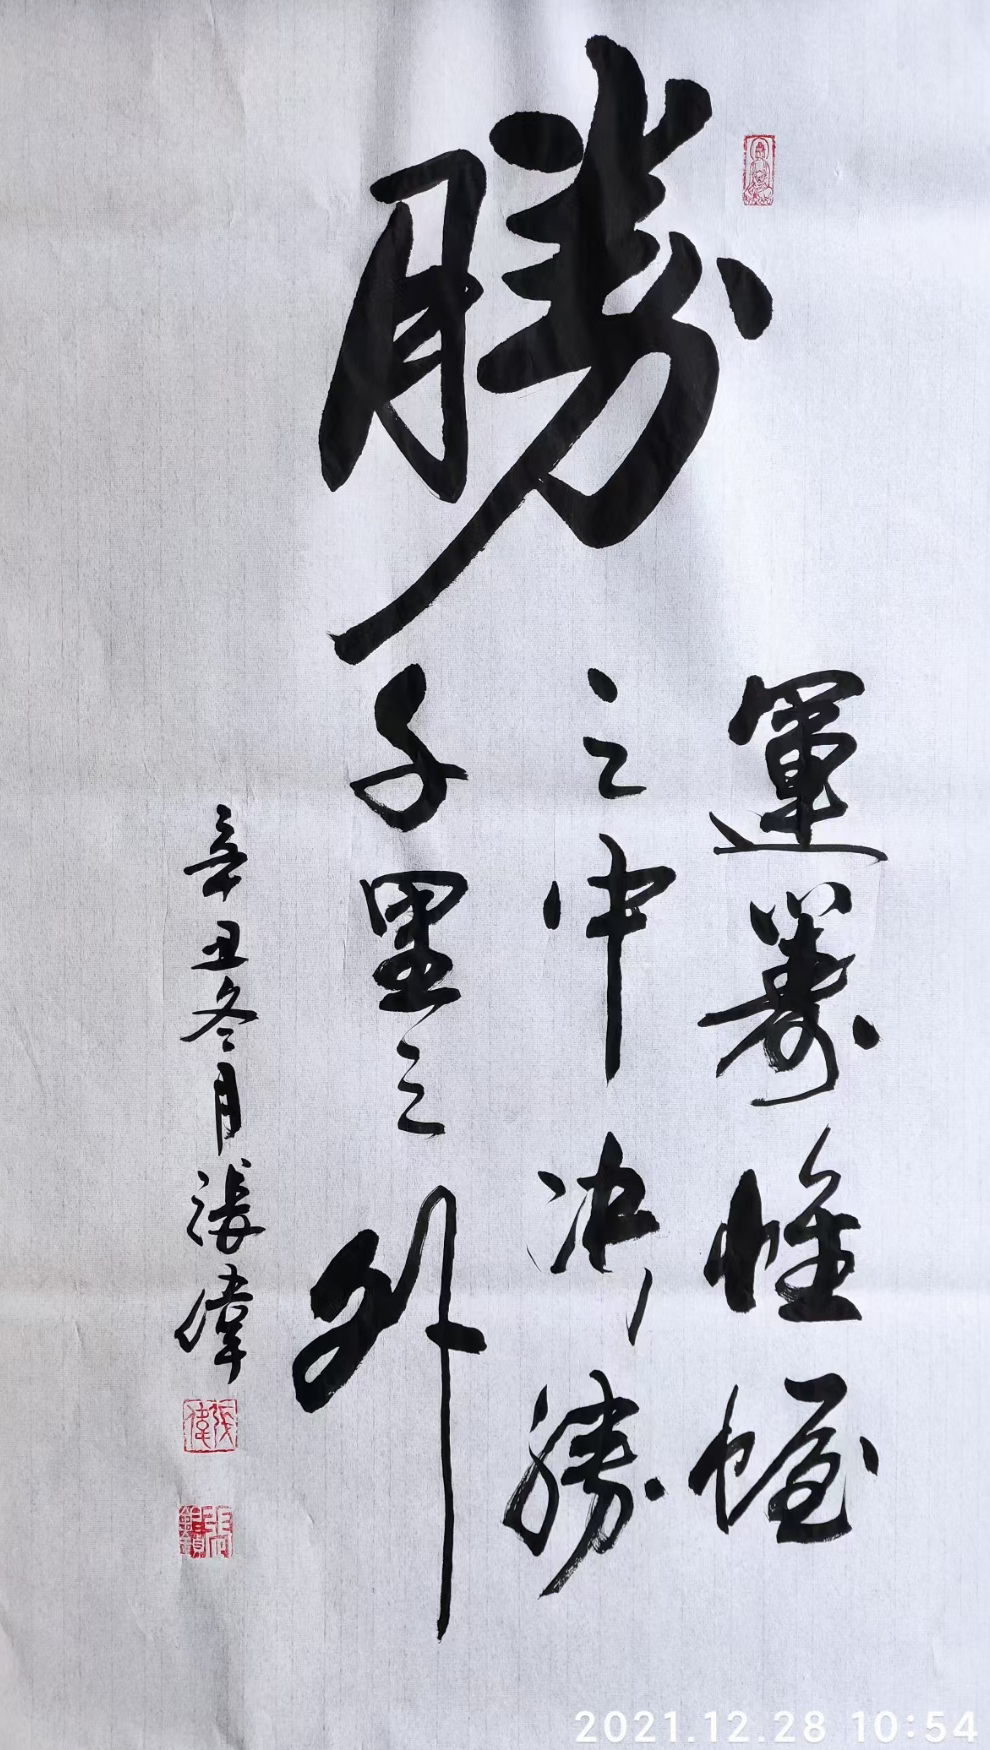 勝
運籌帷幄
之中決勝
千里之外
辛丑冬月張偉
張偉
2021.12.28 10:54